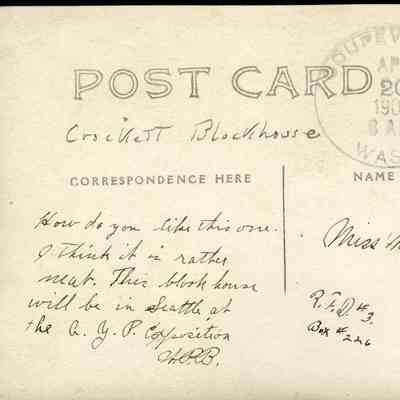 COUPEV
AP
20
190
8 A
WAS
POST CARD
Crockett Blockhouse
CORRESPONDENCE HERE
NAME
How do you like this one.
I think it is rather
neat. This block house
will be in Seattle at
the A. Y. P. Exposition
H.P.B.
Miss M
R.F.D. #3.
Box #226